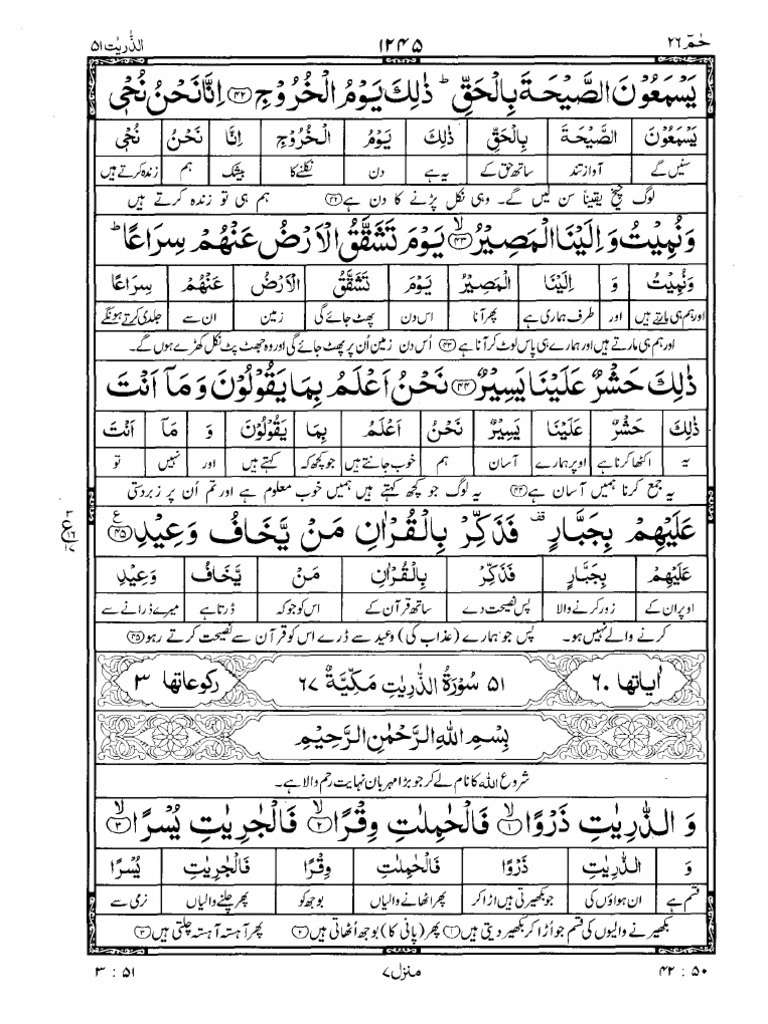 حٰمٓ ٢٦ ١٢٤٥ الذّٰریٰت ٥١
یَسْمَعُوْنَ الصَّیْحَةَ بِالْحَقِّ ؕ ذٰلِكَ یَوْمُ الْخُرُوْجِ ﴿٤٢﴾ اِنَّا نَحْنُ نُحْیٖ
یَسْمَعُوْنَ الصَّیْحَةَ بِالْحَقِّ ذٰلِكَ یَوْمُ الْخُرُوْجِ اِنَّا نَحْنُ نُحْیٖ
سنیں گے آواز تند ساتھ حق کے یہ ہے دن نکلنے کا بیشک ہم زندہ کرتے ہیں
لوگ چیخ یقیناً سن لیں گے۔ وہی نکل پڑنے کا دن ہے ﴿٤٢﴾ ہم ہی تو زندہ کرتے ہیں
وَنُمِیْتُ وَ اِلَیْنَا الْمَصِیْرُ ﴿٤٣﴾ ۙ یَوْمَ تَشَقَّقُ الْاَرْضُ عَنْهُمْ سِرَاعًا ؕ
وَنُمِیْتُ وَ اِلَیْنَا الْمَصِیْرُ یَوْمَ تَشَقَّقُ الْاَرْضُ عَنْهُمْ سِرَاعًا
اور ہم ہی مارتے ہیں اور طرف ہماری ہے پھر آنا اس دن پھٹ جائے گی زمین ان سے جلدی کرتے ہونگے
اور ہم ہی مارتے ہیں اور ہمارے ہی پاس لوٹ کر آنا ہے ﴿٤٣﴾ اُس دن زمین اُن پر پھٹ جائے گی اور وہ جھٹ پٹ نکل کھڑے ہوں گے۔
ذٰلِكَ حَشْرٌ عَلَیْنَا یَسِیْرٌ ﴿٤٤﴾ نَحْنُ اَعْلَمُ بِمَا یَقُوْلُوْنَ وَ مَاۤ اَنْتَ
ذٰلِكَ حَشْرٌ عَلَیْنَا یَسِیْرٌ نَحْنُ اَعْلَمُ بِمَا یَقُوْلُوْنَ وَ مَاۤ اَنْتَ
یہ اکٹھا کرنا ہے اوپر ہمارے آسان ہم خوب جانتے ہیں جو کچھ کہ کہتے ہیں اور نہیں تو
یہ جمع کرنا ہمیں آسان ہے ﴿٤٤﴾ یہ لوگ جو کچھ کہتے ہیں ہمیں خوب معلوم ہے اور تم اُن پر زبردستی
عَلَیْهِمْ بِجَبَّارٍ قف فَذَكِّرْ بِالْقُرْاٰنِ مَنْ یَّخَافُ وَعِیْدِ ﴿٤٥﴾ ع
عَلَیْهِمْ بِجَبَّارٍ فَذَكِّرْ بِالْقُرْاٰنِ مَنْ یَّخَافُ وَعِیْدِ
اوپر ان کے زور کرنے والا پس نصیحت دے ساتھ قرآن کے اس کو جو کہ ڈرتا ہے میرے ڈرانے سے
کرنے والے نہیں ہو۔ پس جو ہمارے (عذاب کی) وعید سے ڈرے اس کو قرآن سے نصیحت کرتے رہو ﴿٤٥﴾
اٰیاتها ٦٠ ٥١ سُوْرَةُ الذّٰرِیٰتِ مَكِّیَّةٌ ٦٧ ركوعاتها ٣
بِسْمِ اللهِ الرَّحْمٰنِ الرَّحِیْمِ
شروع اللہ کا نام لے کر جو بڑا مہربان نہایت رحم والا ہے۔
وَ الذّٰرِیٰتِ ذَرْوًا ﴿١﴾ ۙ فَالْحٰمِلٰتِ وِقْرًا ﴿٢﴾ ۙ فَالْجٰرِیٰتِ یُسْرًا ﴿٣﴾ ۙ
وَ الذّٰرِیٰتِ ذَرْوًا فَالْحٰمِلٰتِ وِقْرًا فَالْجٰرِیٰتِ یُسْرًا
قسم ہے ان ہواؤں کی جو بکھیرتی ہیں اڑا کر پھر اٹھانے والیاں بوجھ کو پھر چلنے والیاں نرمی سے
بکھیرنے والیوں کی قسم جو اُڑا کر بکھیر دیتی ہیں ﴿١﴾ پھر (پانی کا) بوجھ اُٹھاتی ہیں ﴿٢﴾ پھر آہستہ آہستہ چلتی ہیں ﴿٣﴾
٥٠ : ٤٢ منزل ٧ ٥١ : ٣